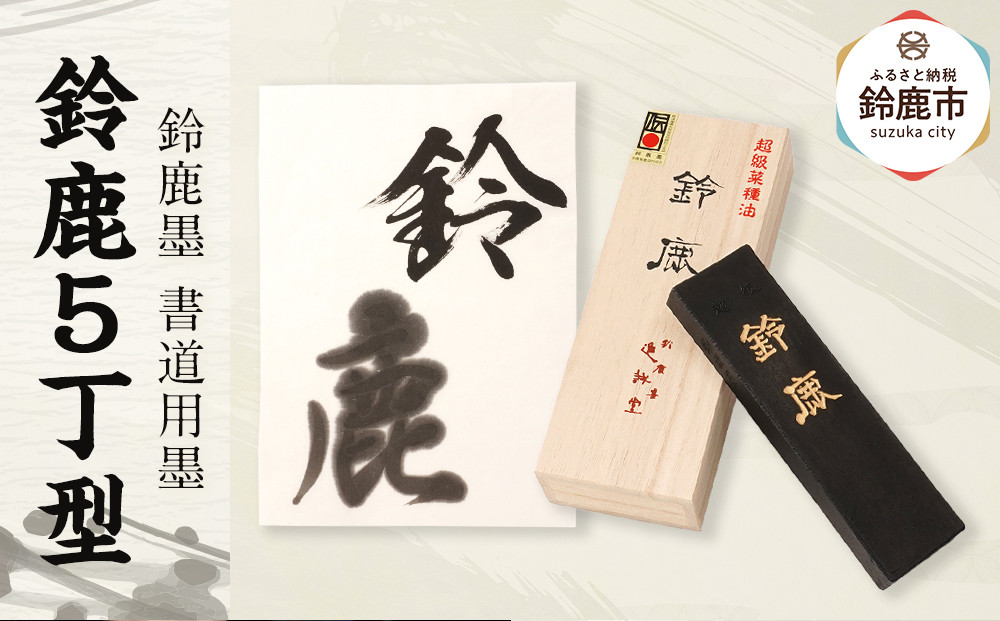 鈴鹿5丁型
鈴鹿墨 書道用墨
鈴
鹿
伝
超級菜種油
鈴鹿
鈴鹿墨
進誠堂
鈴鹿
ふるさと納税
鈴鹿市
suzuka city